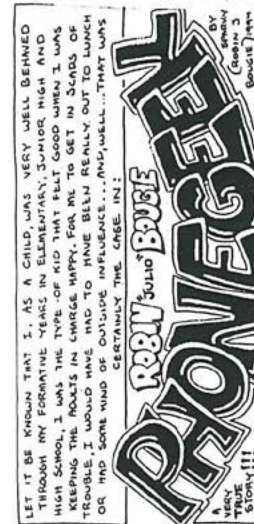 LET IT BE KNOWN THAT I, AS A CHILD, WAS VERY WELL BEHAVED
THROUGH MY FORMATIVE YEARS IN ELEMENTARY, JUNIOR HIGH AND
HIGH SCHOOL, I WAS THE TYPE OF KID THAT FELT GOOD WHEN I WAS
KEEPING THE ADULTS IN CHARGE HAPPY. FOR ME TO GET IN SCABS OF
TROUBLE, I WOULD HAVE HAD TO HAVE BEEN REALLY OUT TO LUNCH
OR HAD SOME KIND OF OUTSIDE INFLUENCE...AND, WELL...THAT WAS
CERTAINLY THE CASE IN:
ROBIN "JULIO" BOUGIE
PHONEGEEK
A
VERY
TRUE
STORY!!!
BY
(ROBIN J
BOUGIE) 1994